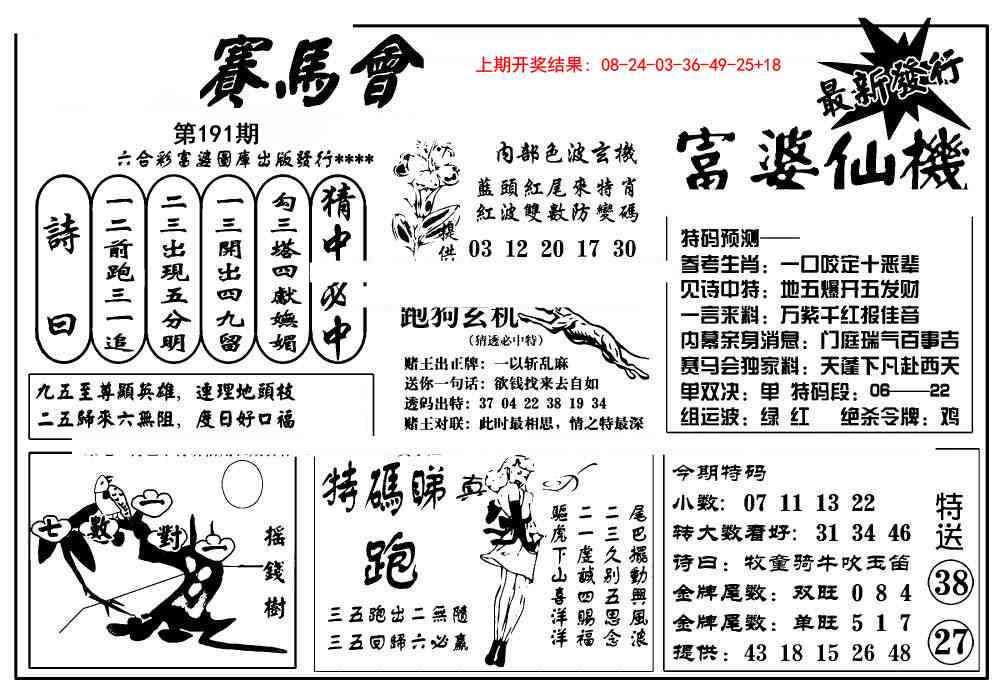 賽馬會
上期开奖结果：08-24-03-36-49-25+18
最新發行
第191期
六合彩富婆圖庫出版發行****
富婆仙機
詩曰
一二前跑三一追
二三出現五分明
一三開出四九留
勾三塔四獻嫵媚
猜中必中
九五至尊顯英雄，連理地頭枝
二五歸來六無阻，度日好口福
內部色波玄機
藍頭紅尾來特肖
紅波雙數防變碼
提供 03 12 20 17 30
跑狗玄机
(猜透必中特)
赌王出正牌：一以斩乱麻
送你一句话：欲钱找来去自如
透码出特：37 04 22 38 19 34
赌王对联：此时最相思，情之特最深
特码预测——
参考生肖：一口咬定十恶辈
见诗中特：地五爆开五发财
一言来料：万紫千红报佳音
内幕亲身消息：门庭瑞气百事吉
赛马会独家料：天蓬下凡赴西天
单双决：单 特码段：06——22
组运波：绿 红 绝杀令牌：鸡
七數一對一
摇錢樹
特碼睇真
跑
三五跑出二無隨
三五回歸六必赢
驅虎下山喜洋洋
二一虔誠四賜福
二三久别五思念
尾巴擺動興風浪
今期特码
小数：07 11 13 22
转大数看好：31 34 46
诗曰：牧童骑牛吹玉笛
金牌尾数：双旺 0 8 4
金牌尾数：单旺 5 1 7
提供：43 18 15 26 48
特送
38
27